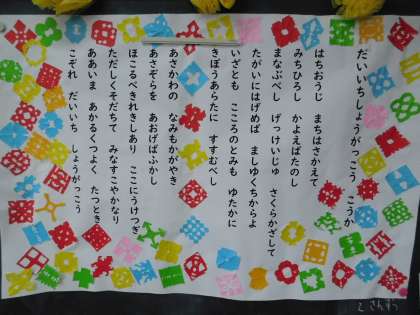 だいいちしょうがっこう こうか
はちおうじ まちはさかえて
みちひろし かよえばたのし
まなぶべし げっけいじゅ さくらかざして
たがいにはげめば ましゆくちからよ
いざとも こころのとみも ゆたかに
きぼうあらたに すすむべし
あさかわの なみもかがやき
あさぞらを あおげばふかし
ほこるべきれきしあり ここにうけつぎ
ただしくそだちて みなすこやかなり
ああいま あかるくつよく たつとき
こぞれ だいいち しょうがっこう